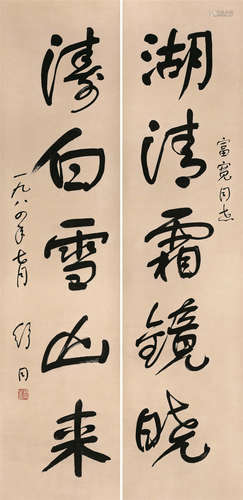 湖清霜镜晓
富宽同志
涛白雪山来
一九八四年七月
舒同